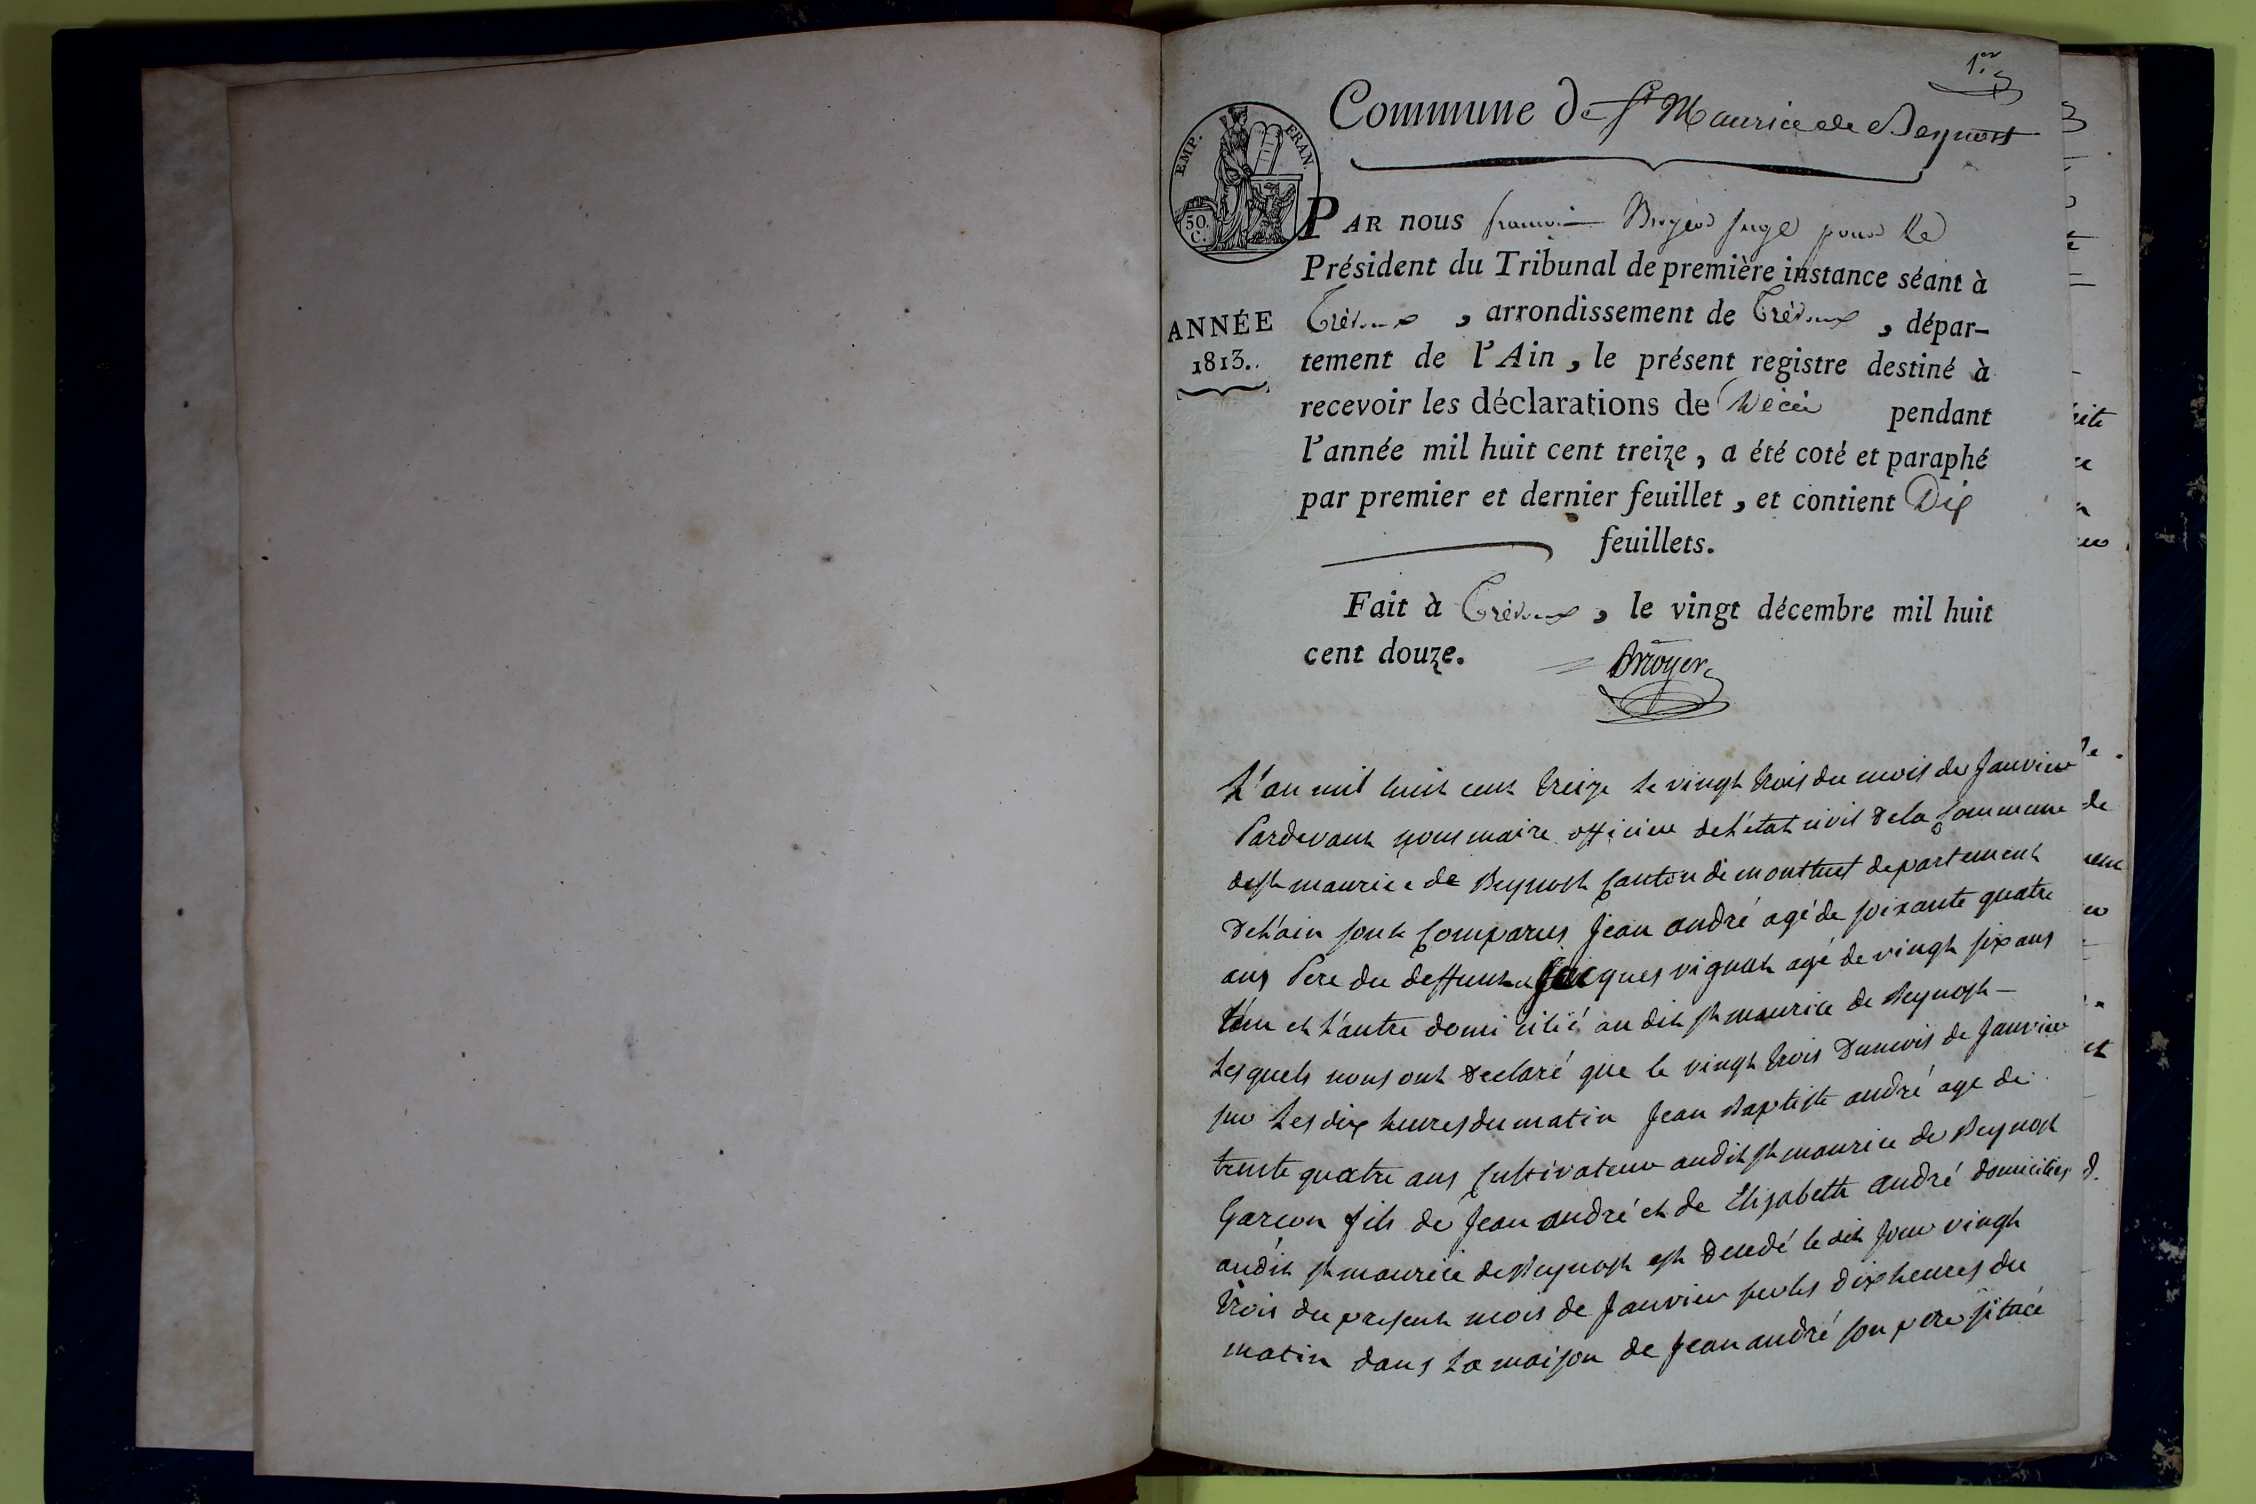 1er
Commune de St Maurice de Beynost
EMP. FRAN.
50 C.
PAR nous françois Broyer juge pour le
Président du Tribunal de première instance séant à
ANNÉE
1813..
Trévoux , arrondissement de Trévoux , dépar-
tement de l'Ain, le présent registre destiné à
recevoir les déclarations de Décès pendant
l'année mil huit cent treize, a été coté et paraphé
par premier et dernier feuillet, et contient Dix
feuillets.
Fait à Trévoux , le vingt décembre mil huit
cent douze.
Broyer
L'an mil huit cent treize le vingt trois du mois de Janvier
Pardevant nous maire officier de l'état civil de la Commune
de st maurice de Beynost Canton de montluel departement
de l'ain sont Comparus Jean andré agé de soixante quatre
ans Pere du deffunt et Jacques vignat agé de vingt six ans
l'un et l'autre domicilié au dit st maurice de Beynost
Lesquels nous ont declaré que le vingt trois du mois de Janvier
sur Les dix heures du matin Jean Baptiste andré age de
trente quatre ans Cultivateur au dit st maurice de Beynost
Garcon fils de Jean andré et de Elisabeth andré domiciliés
au dit st maurice de Beynost est decedé le dit jour vingt
trois du present mois de Janvier sur les dix heures du
matin dans La maison de Jean andré son pere sitacé